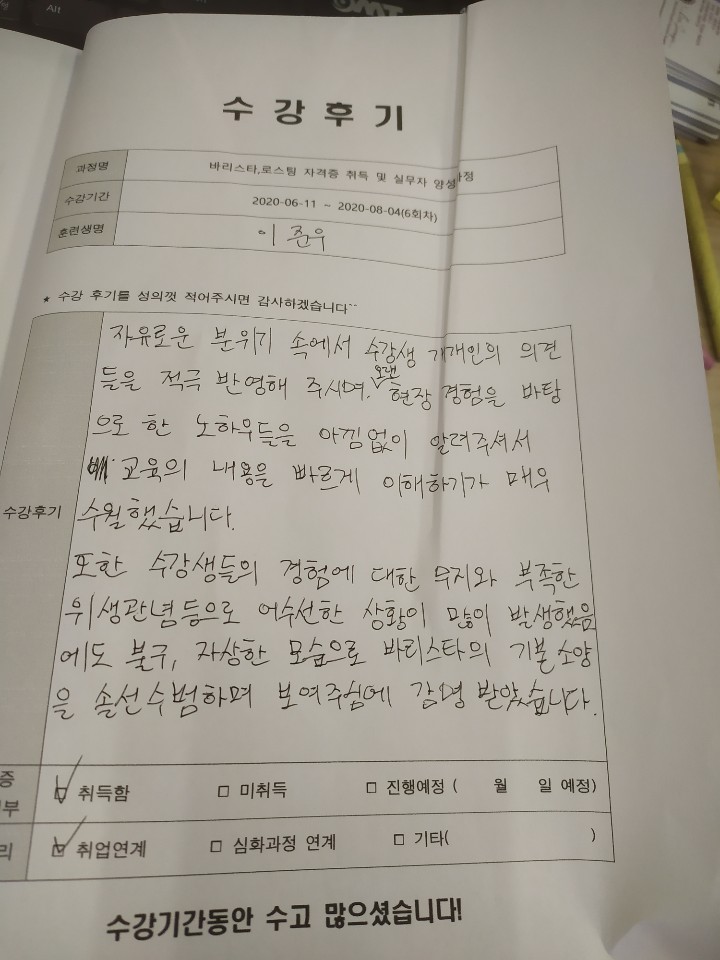 Alt
수 강 후 기
과정명 바리스타,로스팅 자격증 취득 및 실무자 양성 과정
수강기간 2020-06-11 ~ 2020-08-04(6회차)
훈련생명 이 준우
★ 수강 후기를 성의껏 적어주시면 감사하겠습니다~~
자유로운 분위기 속에서 수강생 개개인의 의견
들을 적극 반영해 주시며. 오랜 현장 경험을 바탕
으로 한 노하우들을 아낌없이 알려주셔서
교육의 내용을 빠르게 이해하기가 매우
수강후기 수월했습니다.
또한 수강생들의 경험에 대한 무지와 부족한
위생관념등으로 어수선한 상황이 많이 발생했음
에도 불구, 자상한 모습으로 바리스타의 기본소양
을 솔선수범하며 보여주심에 감명 받았습니다.
증
부 ☑ 취득함 □ 미취득 □ 진행예정 ( 월 일 예정)
리 ☑ 취업연계 □ 심화과정 연계 □ 기타( )
수강기간동안 수고 많으셨습니다!